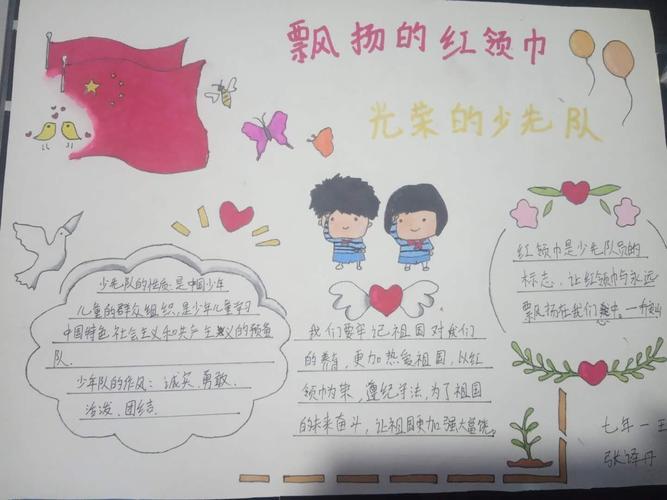 飘扬的红领巾
光荣的少先队
少先队的性质：是中国少年
儿童的群众组织，是少年儿童学习
中国特色社会主义和共产主义的预备
队.
少年队的作风：诚实、勇敢、
活泼、团结.
我们要牢记祖国对我们
的养育，更加热爱祖国，以红
领巾为荣，遵纪守法，为了祖国
的未来奋斗，让祖国更加强大富饶。
红领巾是少先队员的
标志，让红领巾与永远
飘扬在我们
七年一
张译丹